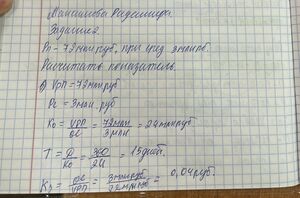 Задание 2
Рп - 72 млн руб, при сред
Расчитать показатель.
1) Vрп = 72 млн руб
Ос = 3 млн. руб
Ко = Vрп/ОС = 72 млн/3 млн = 24 млн руб
T = Д/Ко = 360/24 = 15 дней.
Кз = ос/Vрп = 3 млн руб/72 млн руб = 0,04 руб.